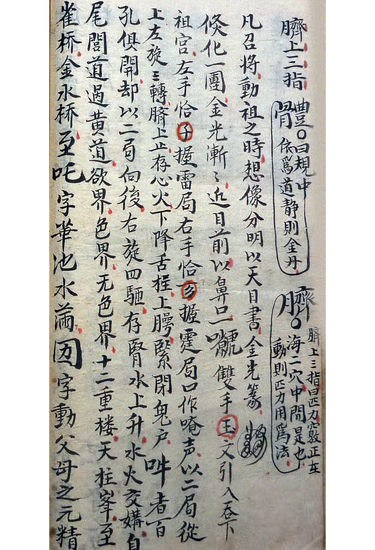 臍上三指
曰規中
依為道靜則金丹
臍
臍上三指曰
海二穴中間是也
動則
用為法
凡召將動祖之時想像分明以天目書金光篆
倏化一團金光漸〻近目前以鼻口吸 雙手玉文引入吞下
祖宮左手恰子握雷局右手恰 握霆局口作唵声以二局從
上左旋三轉臍上止存心火下降舌拄上腭緊閉兌戶 吽者百
孔俱開却以二局向後右旋四 存腎水上升水火交媾自
尾閭道過黃道欲界色界无色界十二重楼天柱峯至
雀桥金水桥至吒字華池水 字動父母之元精